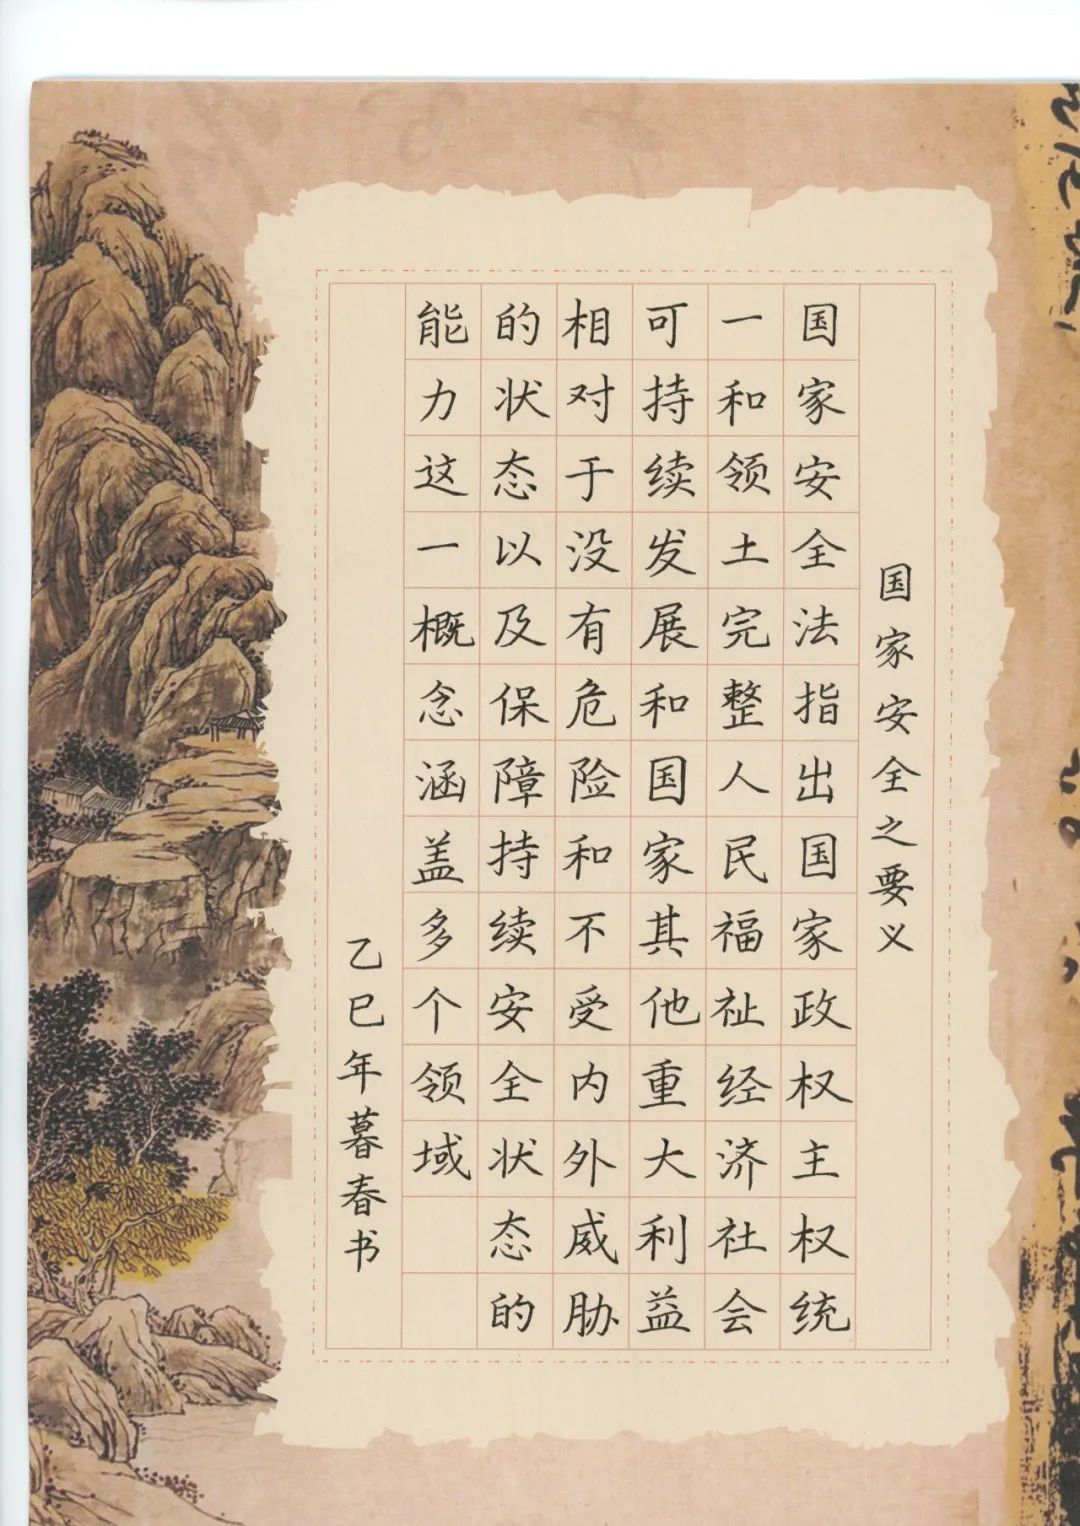 国家安全之要义
国家安全法指出国家政权主权统
一和领土完整人民福祉经济社会
可持续发展和国家其他重大利益
相对于没有危险和不受内外威胁
的状态以及保障持续安全状态的
能力这一概念涵盖多个领域
乙巳年暮春书